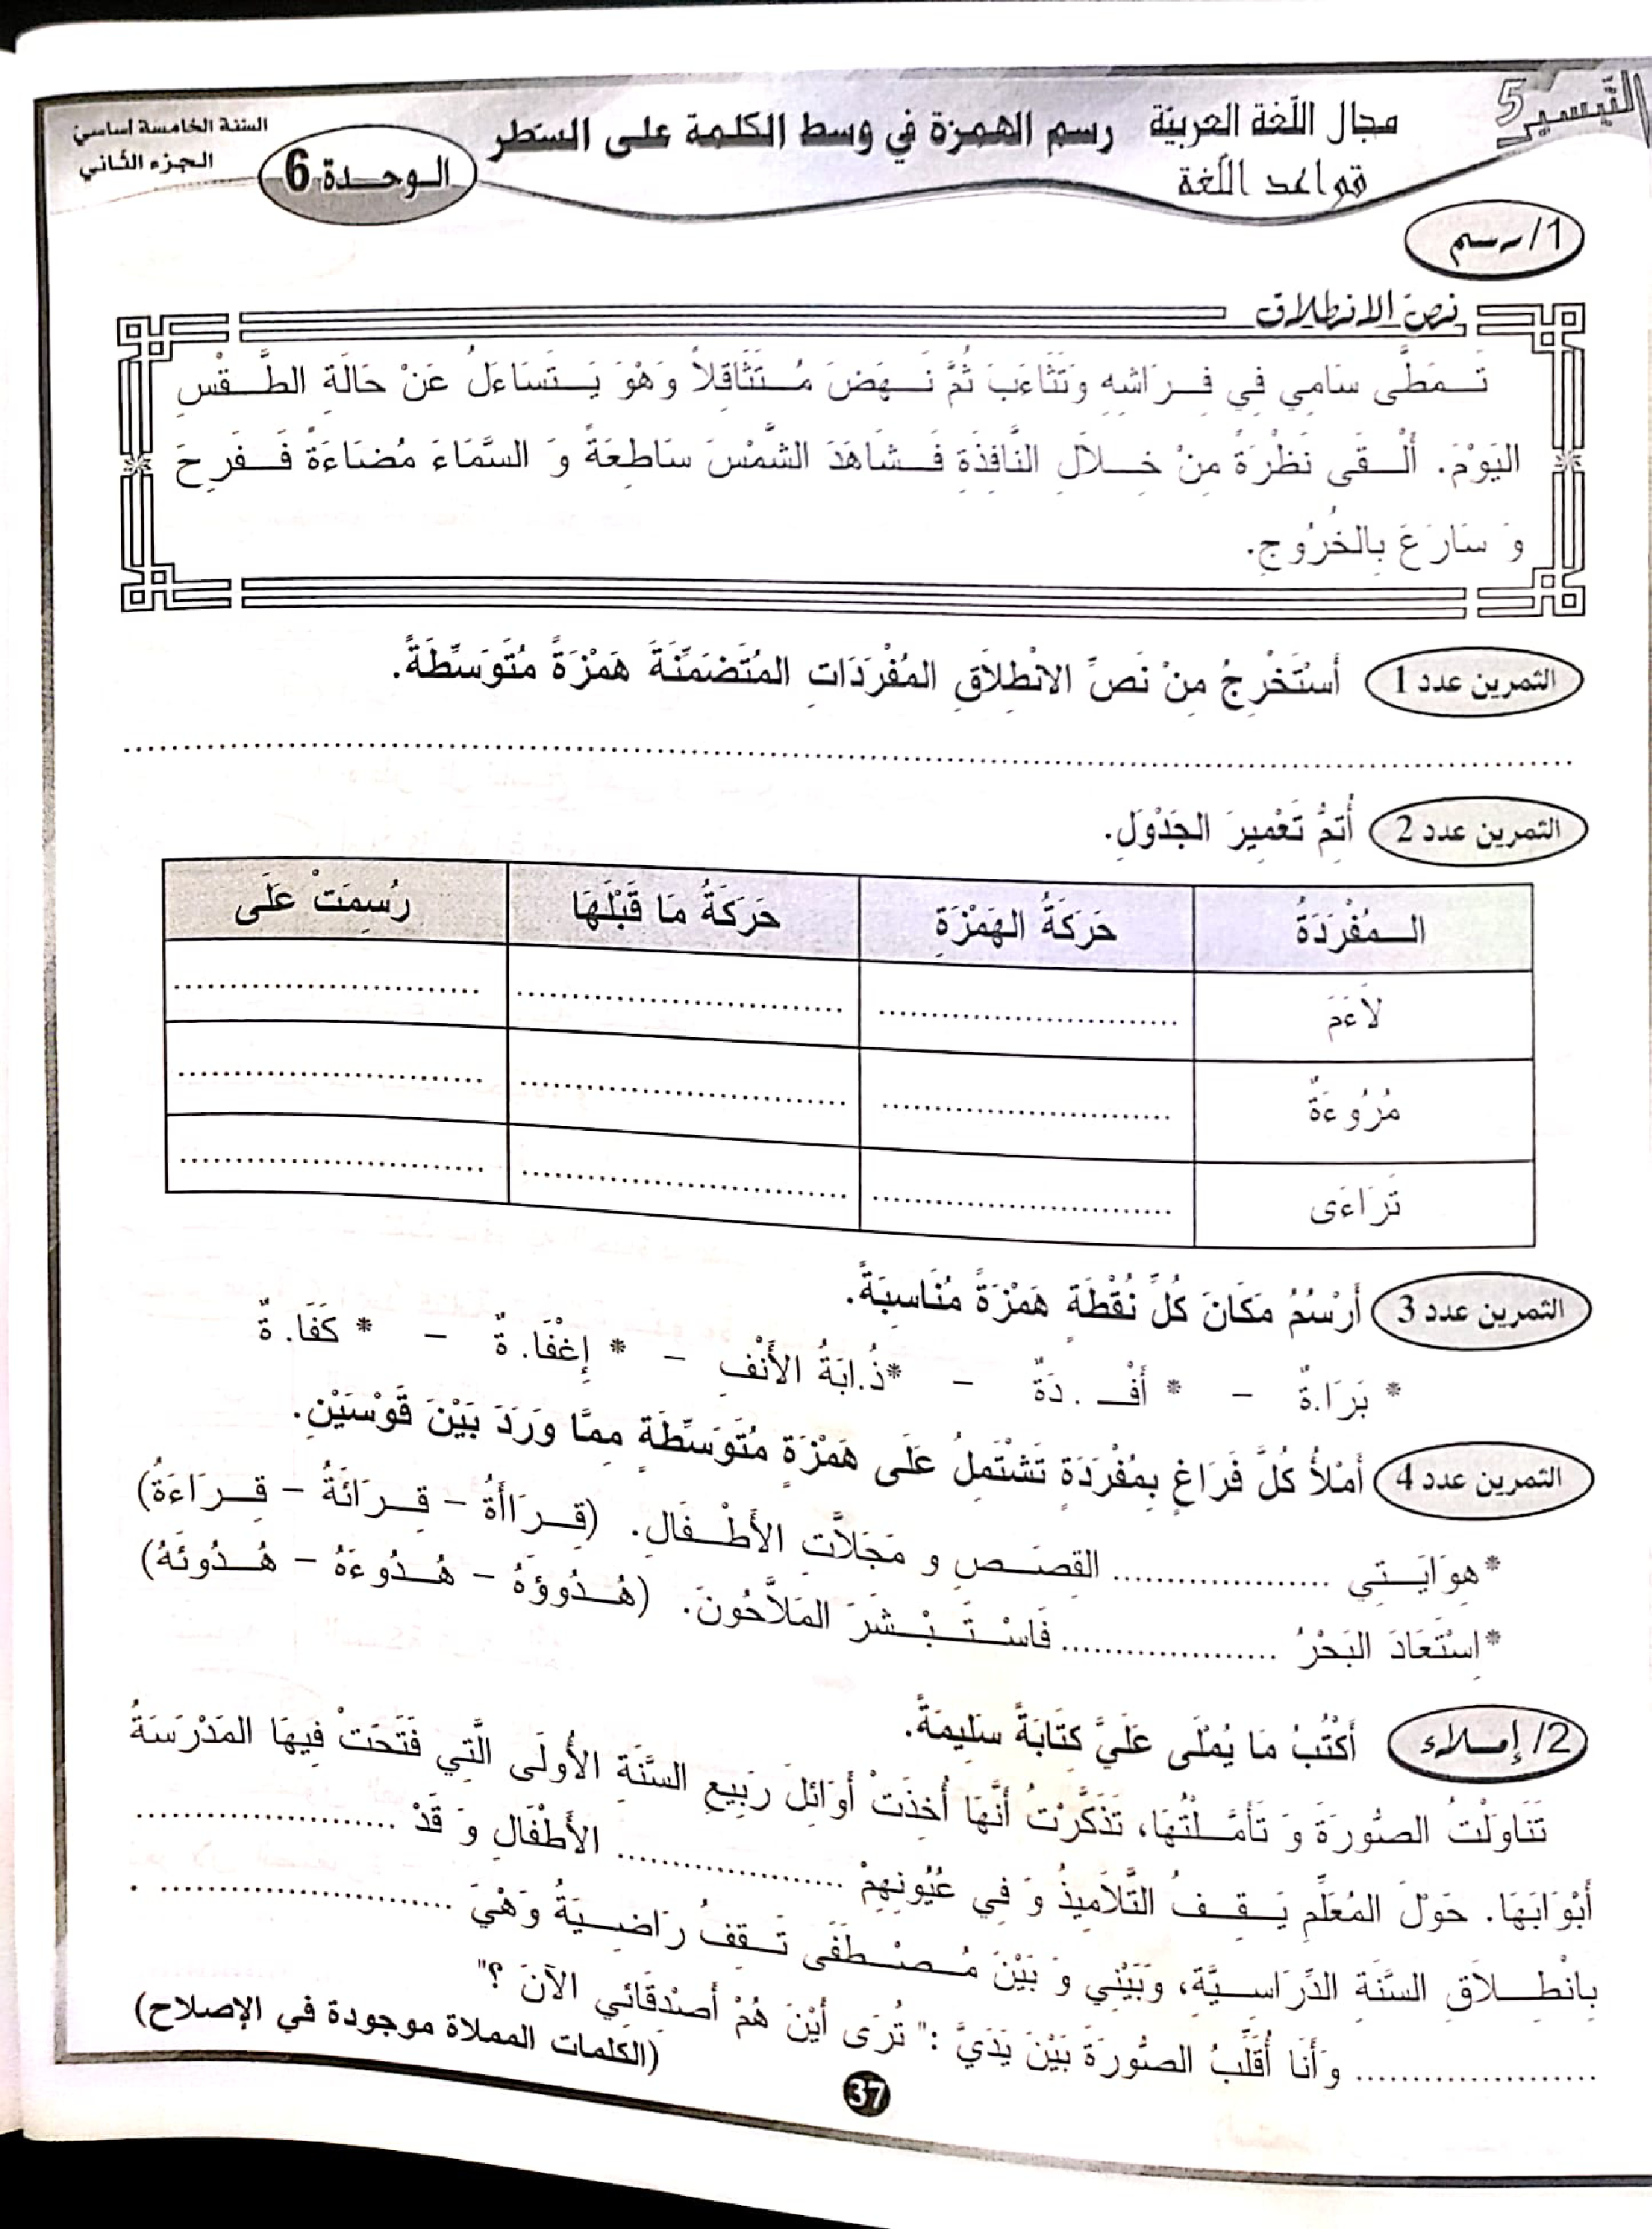 التّيسير 5
مجال اللّغة العربيّة رسم الهمزة في وسط الكلمة على السّطر
قواعد اللّغة
السّنة الخامسة أساسي
الجزء الثّاني
الوحدة 6
1/ رسم
نصّ الانطلاق
تَمَطَّى سَامِي فِي فِرَاشِهِ وَتَثَاءَبَ ثُمَّ نَهَضَ مُتَثَاقِلاً وَهُوَ يَتَسَاءَلُ عَنْ حَالَةِ الطَّقْسِ
اليَوْمَ. أَلْقَى نَظْرَةً مِنْ خِلاَلِ النَّافِذَةِ فَشَاهَدَ الشَّمْسَ سَاطِعَةً وَ السَّمَاءَ مُضَاءَةً فَفَرِحَ
وَ سَارَعَ بِالخُرُوجِ.
التمرين عدد 1 أَسْتَخْرِجُ مِنْ نَصِّ الانْطِلاَقِ المُفْرَدَاتِ المُتَضَمِّنَةَ هَمْزَةً مُتَوَسِّطَةً.
التمرين عدد 2 أُتِمُّ تَعْمِيرَ الجَدْوَلِ.
المُفْرَدَةُ حَرَكَةُ الهَمْزَةِ حَرَكَةُ مَا قَبْلَهَا رُسِمَتْ عَلَى
لاَءَمَ
مُرُوءَةٌ
تَرَاءَى
التمرين عدد 3 أَرْسُمُ مَكَانَ كُلِّ نُقْطَةٍ هَمْزَةً مُنَاسِبَةً.
* بَرَا.ةٌ - * أَفْـ . دَةٌ - *ذُ.ابَةُ الأَنْفِ - * إِغْفَا.ةٌ - * كَفَا. ةٌ
التمرين عدد 4 أَمْلأُ كُلَّ فَرَاغٍ بِمُفْرَدَةٍ تَشْتَمِلُ عَلَى هَمْزَةٍ مُتَوَسِّطَةٍ مِمَّا وَرَدَ بَيْنَ قَوْسَيْنِ.
*هِوَايَتِي .................... القِصَصِ و مَجَلاَّتِ الأَطْفَالِ. (قِرَاأَةُ - قِرَائَةُ - قِرَاءَةُ)
*اِسْتَعَادَ البَحْرُ .................... فَاسْتَبْشَرَ المَلاَّحُونَ. (هُدُوؤَهُ - هُدُوءَهُ - هُدُوئَهُ)
2/ إملاء أَكْتُبُ مَا يُمْلَى عَلَيَّ كِتَابَةً سَلِيمَةً.
تَنَاوَلْتُ الصُّورَةَ وَ تَأَمَّلْتُهَا، تَذَكَّرْتُ أَنَّهَا أُخِذَتْ أَوَائِلَ رَبِيعِ السَّنَةِ الأُولَى الَّتِي فَتَحَتْ فِيهَا المَدْرَسَةُ
أَبْوَابَهَا. حَوْلَ المُعَلِّمِ يَقِفُ التَّلاَمِيذُ وَ فِي عُيُونِهِمْ .................... الأَطْفَالِ وَ قَدْ ....................
بِانْطِلاَقِ السَّنَةِ الدِّرَاسِيَّةِ، وَبَيْنِي وَ بَيْنَ مُصْطَفَى تَقِفُ رَاضِيَةُ وَهْيَ .................... .
.................... وَأَنَا أُقَلِّبُ الصُّورَةَ بَيْنَ يَدَيَّ :" تُرَى أَيْنَ هُمْ أَصْدِقَائِي الآنَ ؟"
(الكلمات المملاة موجودة في الإصلاح)
37